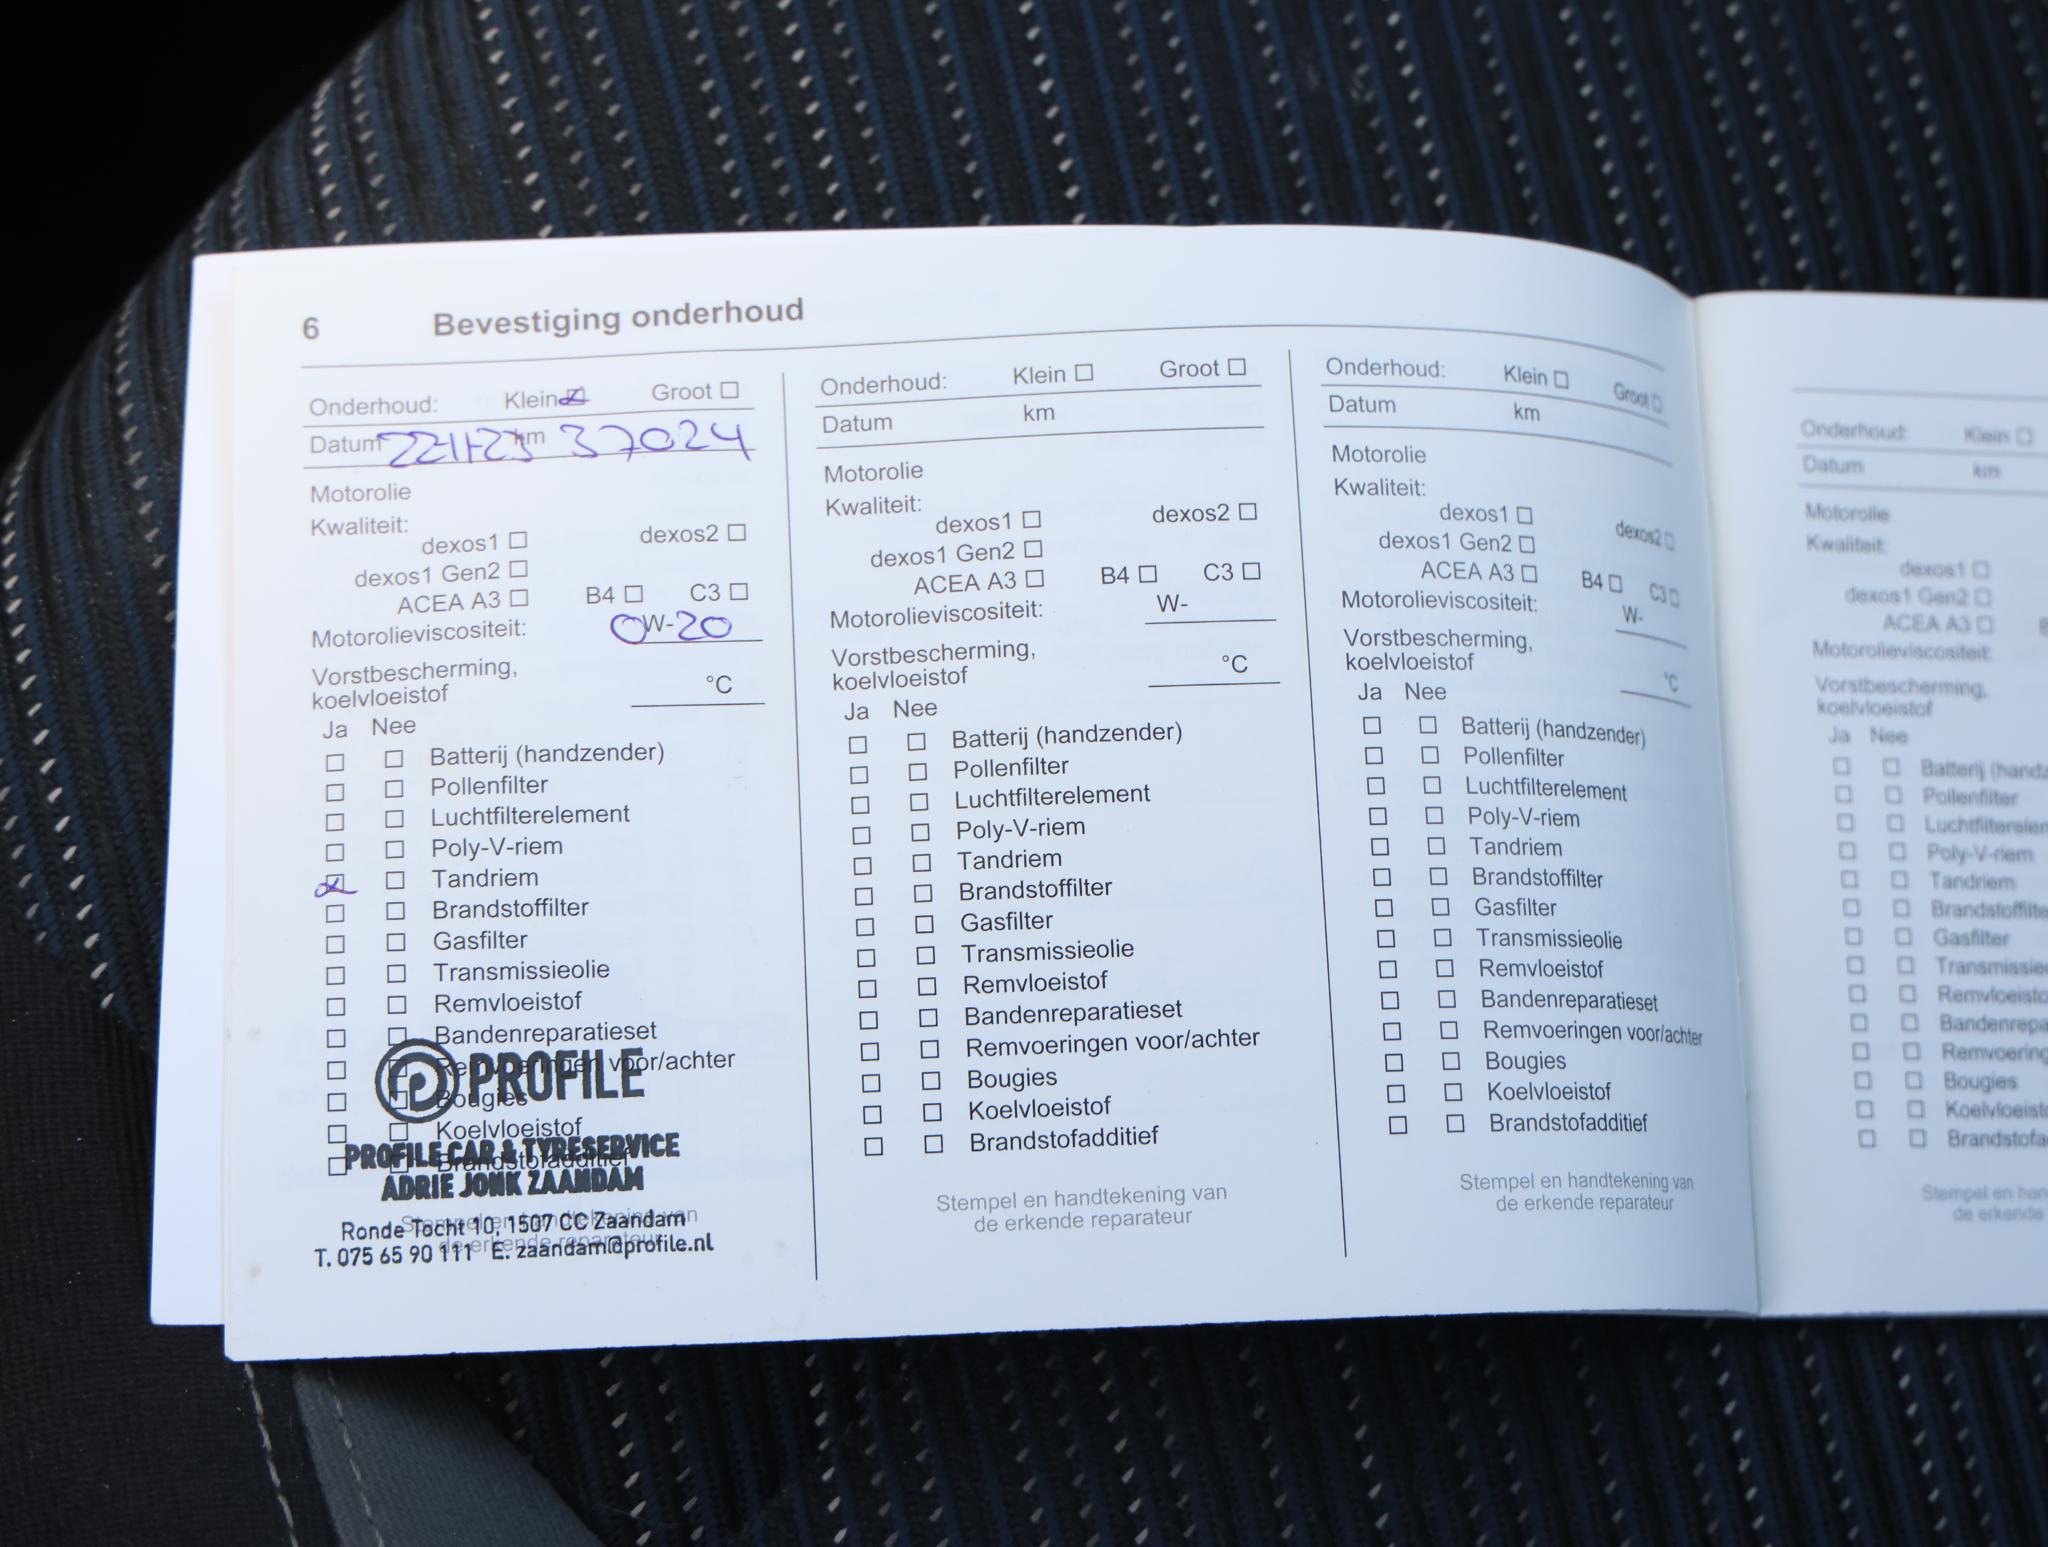 6 Bevestiging onderhoud
Onderhoud: Klein ☒ Groot ☐
Datum 22-11-23 km 37024
Motorolie
Kwaliteit:
dexos1 ☐ dexos2 ☐
dexos1 Gen2 ☐
ACEA A3 ☐ B4 ☐ C3 ☐
Motorolieviscositeit: 0W-20
Vorstbescherming,
koelvloeistof °C
Ja Nee
☐ ☐ Batterij (handzender)
☐ ☐ Pollenfilter
☐ ☐ Luchtfilterelement
☐ ☐ Poly-V-riem
☒ ☐ Tandriem
☐ ☐ Brandstoffilter
☐ ☐ Gasfilter
☐ ☐ Transmissieolie
☐ ☐ Remvloeistof
☐ ☐ Bandenreparatieset
☐ ☐ Remvoeringen voor/achter
☐ ☐ Bougies
☐ ☐ Koelvloeistof
☐ ☐ Brandstofadditief
Stempel en handtekening van
de erkende reparateur
PROFILE
PROFILE CAR & TYRESERVICE
ADRIE JONK ZAANDAM
Ronde Tocht 10, 1507 CC Zaandam
T. 075 65 90 111 E. zaandam@profile.nl
Onderhoud: Klein ☐ Groot ☐
Datum km
Motorolie
Kwaliteit:
dexos1 ☐ dexos2 ☐
dexos1 Gen2 ☐
ACEA A3 ☐ B4 ☐ C3 ☐
Motorolieviscositeit: W-
Vorstbescherming,
koelvloeistof °C
Ja Nee
☐ ☐ Batterij (handzender)
☐ ☐ Pollenfilter
☐ ☐ Luchtfilterelement
☐ ☐ Poly-V-riem
☐ ☐ Tandriem
☐ ☐ Brandstoffilter
☐ ☐ Gasfilter
☐ ☐ Transmissieolie
☐ ☐ Remvloeistof
☐ ☐ Bandenreparatieset
☐ ☐ Remvoeringen voor/achter
☐ ☐ Bougies
☐ ☐ Koelvloeistof
☐ ☐ Brandstofadditief
Stempel en handtekening van
de erkende reparateur
Onderhoud: Klein ☐ Groot ☐
Datum km
Motorolie
Kwaliteit:
dexos1 ☐ dexos2 ☐
dexos1 Gen2 ☐
ACEA A3 ☐ B4 ☐ C3 ☐
Motorolieviscositeit: W-
Vorstbescherming,
koelvloeistof °C
Ja Nee
☐ ☐ Batterij (handzender)
☐ ☐ Pollenfilter
☐ ☐ Luchtfilterelement
☐ ☐ Poly-V-riem
☐ ☐ Tandriem
☐ ☐ Brandstoffilter
☐ ☐ Gasfilter
☐ ☐ Transmissieolie
☐ ☐ Remvloeistof
☐ ☐ Bandenreparatieset
☐ ☐ Remvoeringen voor/achter
☐ ☐ Bougies
☐ ☐ Koelvloeistof
☐ ☐ Brandstofadditief
Stempel en handtekening van
de erkende reparateur
Onderhoud: Klein ☐
Datum km
Motorolie
Kwaliteit:
dexos1 ☐
dexos1 Gen2 ☐
ACEA A3 ☐
Motorolieviscositeit:
Vorstbescherming,
koelvloeistof
Ja Nee
☐ ☐ Batterij
☐ ☐ Pollenfilter
☐ ☐
☐ ☐ Poly-V-riem
☐ ☐ Tandriem
☐ ☐
☐ ☐ Gasfilter
☐ ☐
☐ ☐
☐ ☐
☐ ☐
☐ ☐ Bougies
☐ ☐
☐ ☐
Stempel en
de erkende